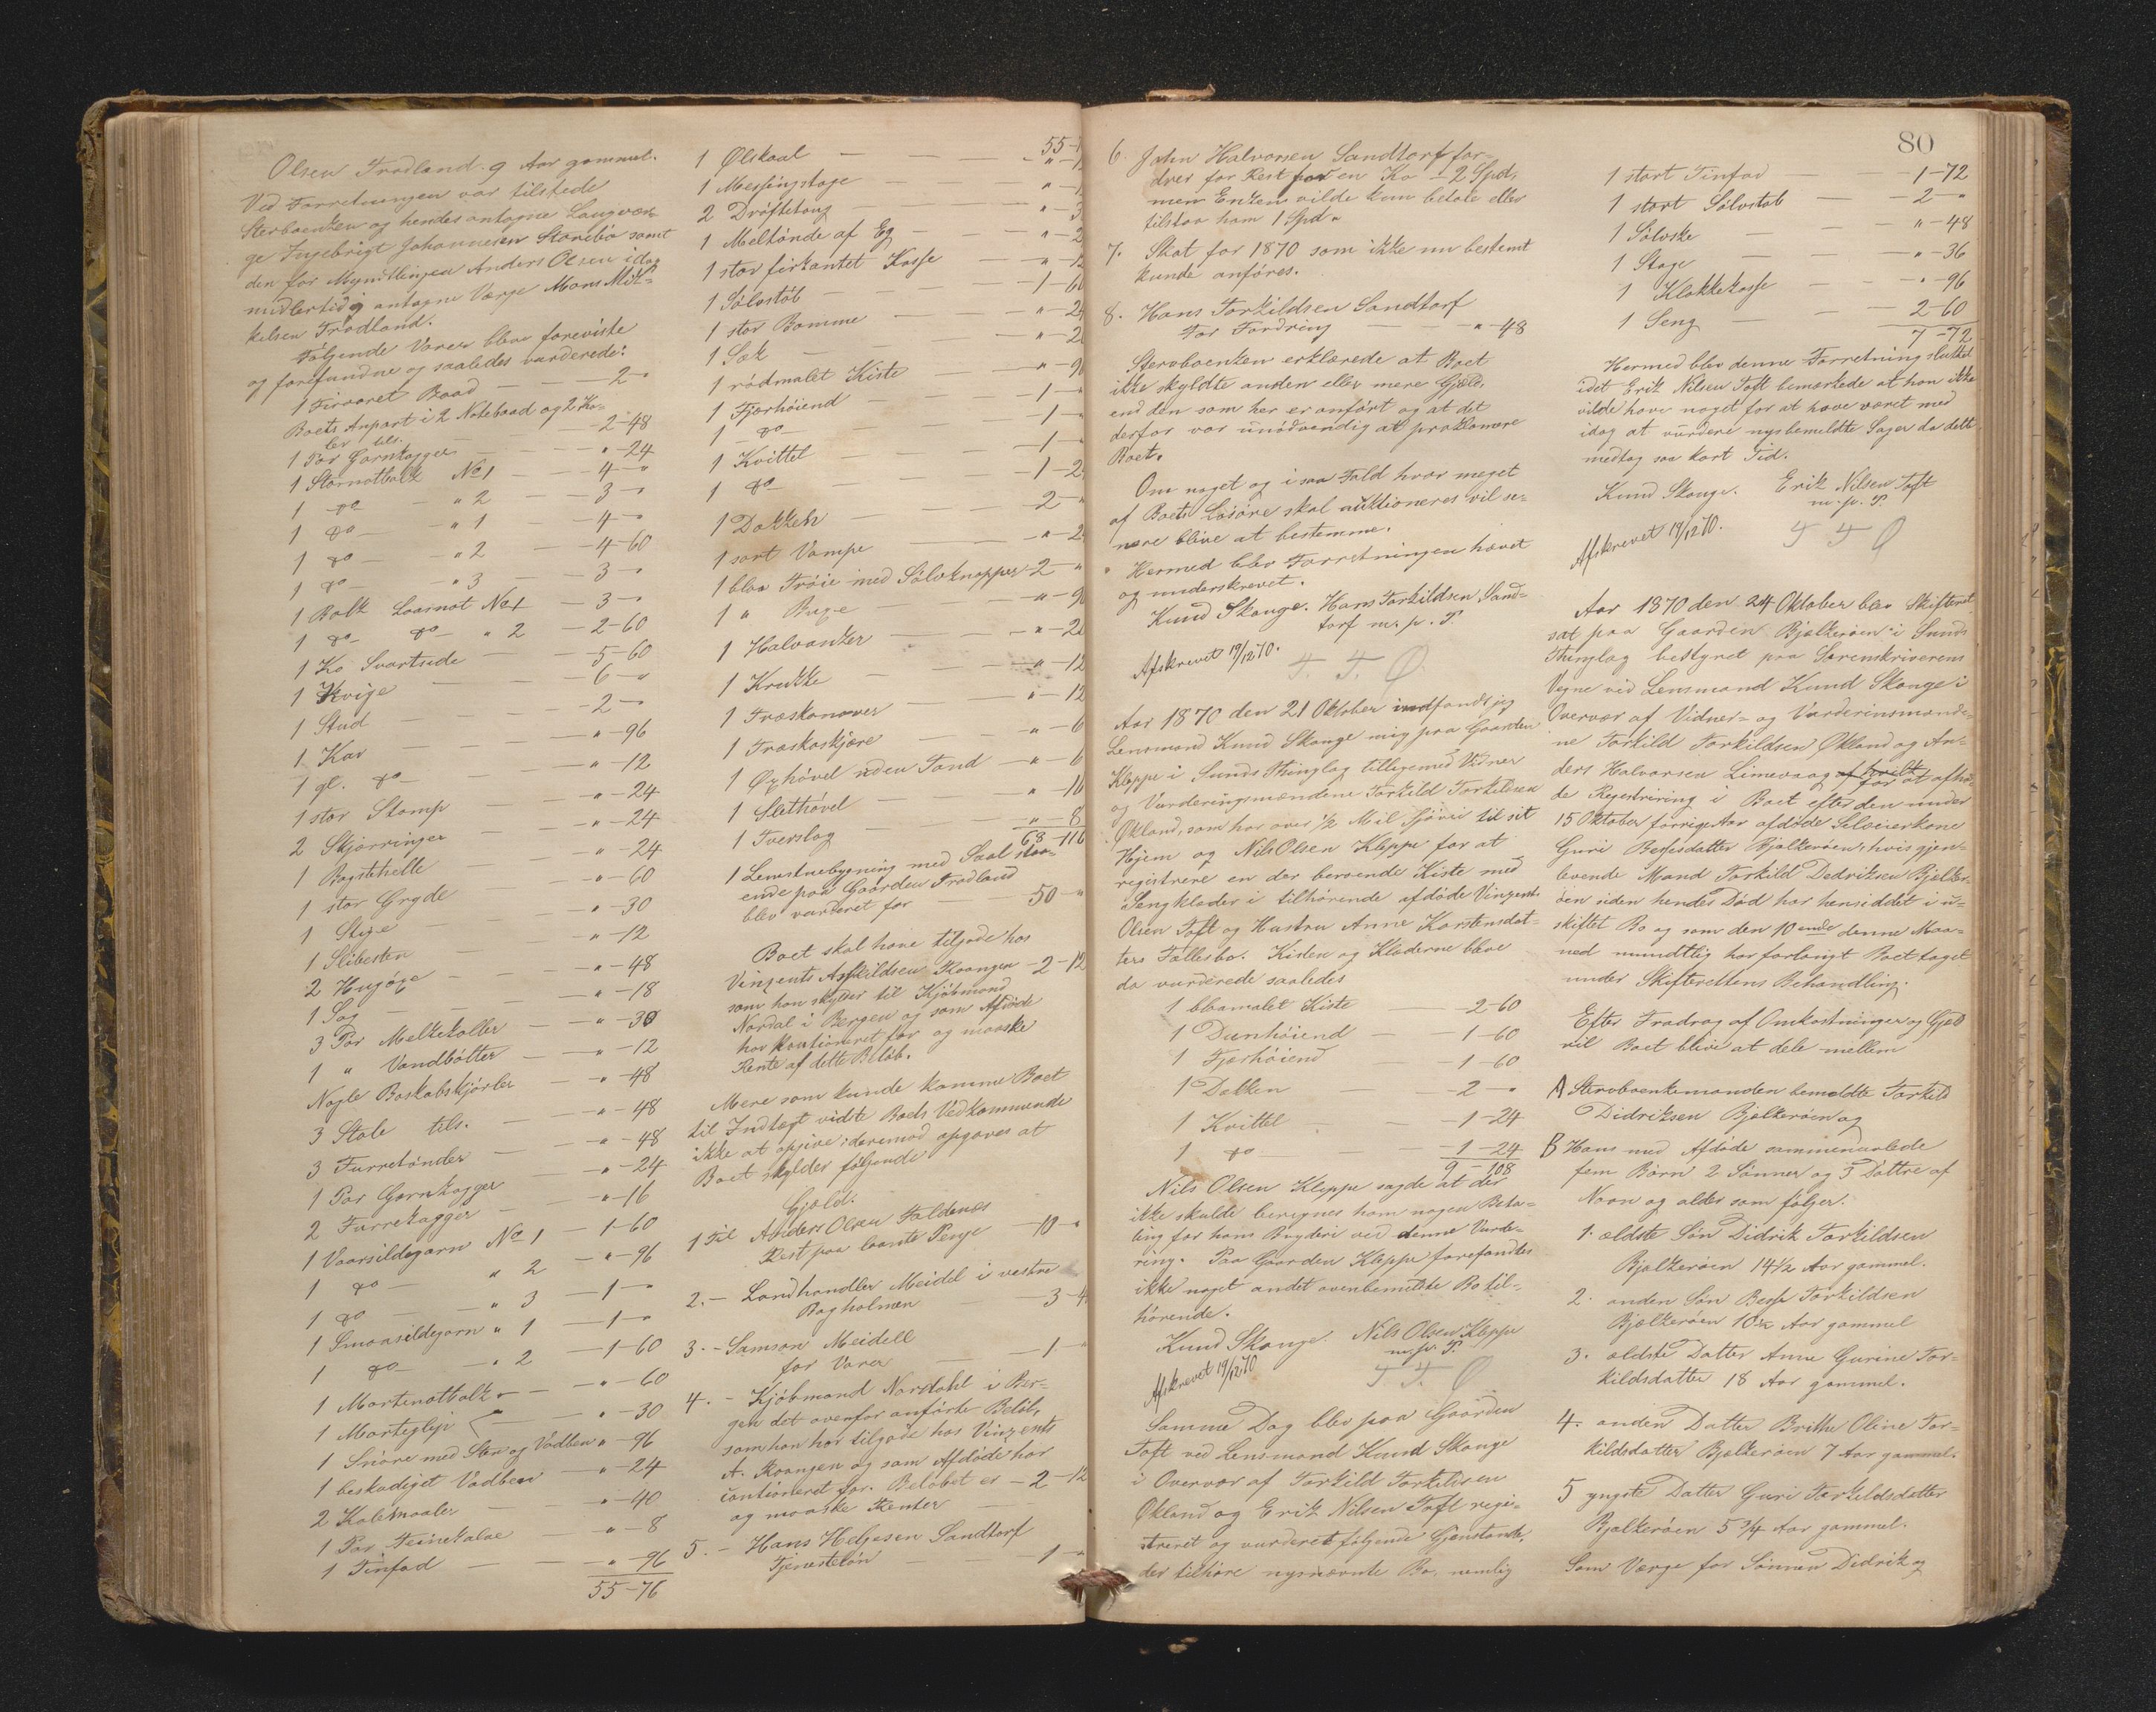 Olsen Trodland. 9 Aar gammel.
Ved Forretningen var tilstede
Sterboenken og hendes antagne Laugvær-
ge Ingebrigt Johannesen Starebø samt
den for Myndlingen Anders Olsen idag
midlertidig antagne Værge Mons Mik-
kelsen Trodland.
Følgende Varer bleve foreviste
og forefundne og saaledes vurderede:
1 Firaaret Baad — — 2 - "
Boets Anpart i 2 Notebaad og 2 Ka-
ler tils. — 2-48
1 Par Garnkagger — " -24
1 Starnotbalk No 1 — 4 - "
1 do — " 2 — 3 - "
1 do — " 1 — 4 - "
1 do — " 2 — 4-60
1 do — " 3 — 3 - "
1 Balk Laasnot No 1 — 3 - "
1 do do " 2 — 2-60
1 Ko Svartside — 5-60
1 Kvige — 6 - "
1 Stud — 2 - "
1 Kar — " -96
1 gl. do — " -12
1 stor Stamp — " -24
2 Skjørringer — " -24
1 Bagstehelle — " -24
1 stor Gryde — " -60
1 Stige — " -30
1 Slibesten — " -12
2 Hugøxe — " -48
1 Sag — " -18
3 Par Melkekoller — " -30
1 " Vandbøtter — " -12
Nogle Boskabskjørler — " -48
3 Stole tils. — " -48
3 Furretønder — " -48
1 Par Garnkagger — " -24
2 Furrekagger — " -16
1 Vaarsildegarn No 1 — 1-60
1 do — " 2 — " -96
1 do — " 3 — 1 - "
1 Smaasildegarn " 1 — 1 - "
1 do — " 2 — 1-60
1 Mortenotbalk — " -60
1 Morteglip — " -30
1 Snøre med Sten og Vadben " -96
1 beskadiget Vadben — " -24
2 Kalemaaler — " -40
1 Par Teinekalve — " -8
1 Tinfad — " -96
55-76
55-
1 Ølskaal —
1 Messingstage —
2 Drøftetoug — " -3
1 Meltønde af Eg — " -2
1 stor firkantet Kasse — " -12
1 Sølvstøb — 1-60
1 stor Bomme — " -2
1 Sæk — " -2
1 rødmalet Kiste — " -9
1 Fjærhøiend — 1 -
1 do — 1 -
1 Kvittel — 1 -
1 do — 1-2
1 Dækken — 2 - "
1 sort Vampe — " -2
1 blaa Trøie med Sølvknapper 2 - "
1 " Buxe — " -9
1 Halvanker — " -2
1 Krukke — " -12
1 Træskonaver — " -12
1 Træskoskjære — " -6
1 Øxhøvel uden Tand — " -6
1 Sletthøvel — " -10
1 Tverslag — " -8
68-110
1 Lemstuebygning med Saal staa-
ende paa Gaarden Trodland
blev vurderet for — 50 - "
Boet skal have tilgode hos
Vinzents Askildsen Kaangen - 2-12
som han skylder til Kjøbmand
Nordal i Bergen og som Afdøde
har kautioneret for og maaske
Rente af dette Beløb.
Mere som kunde komme Boet
til Indtægt vidste Boets Vedkommende
ikke at opgive; deremod opgaves at
Boet skylder følgende
Gjæld:
1 Til Anders Olsen Faldenæs
Rest paa laante Penge — 10 - "
2. - Landhandler Meidel i vestre
Bagholmen — 3-4
3. - Samson Meidell
for Varer — 1 -
4. - Kjøbmand Nordahl i Ber-
gen det ovenfor anførte Beløb,
som han har tilgode hos Vinzents
A. Kaangen og som Afdøde har
cautioneret for. Beløbet er - 2-12
og maaske Renter
5. - Hans Helgesen Sandtorf
Tjenesteløn — 1 - "
80
6. John Halvorsen Sandtorf for-
drer for Rest for en Ko - 2 Spd,
men Enken vilde kun betale eller
tilstaa ham 1 Spd "
7. Skat for 1870 som ikke nu bestemt
kunde anføres.
8. Hans Torkildsen Sandtorf
for Fordring — " -48
Stervboenken erklærede at Boet
ikke skyldte anden eller mere Gjæld,
end den som her er anført og at det
derfor var unødvendig at proklamere
Boet.
Om noget og i saa Fald hvor meget
af Boets Løsøre skal auktioneres vil se-
nere blive at bestemme.
Hermed blev Forretningen hævet
og underskrevet.
Knud Skange. Hans Torkildsen Sand-
torf m. p. P.
Afskrevet 19/12 70.
Aar 1870 den 21 Oktober indfandt jeg
Lensmand Knud Skange mig paa Gaarden
Kleppe i Sunds Thinglag tilligemed Vidner
og Vurderingsmændene Torkild Torkildsen
Økland, som har over 1/2 Mil Sjøvei til sit
Hjem og Nils Olsen Kleppe for at
registrere en der beroende Kiste med
Sengklæder i tilhørende afdøde Vinzent
Olsen Toft og Hustru Anne Karstensdat-
ters Fællesbo. Kisten og Klæderne bleve
da vurderede saaledes
1 blaamalet Kiste — 2-60
1 Dunhøiend — 1-60
1 Fjærhøiend — 1-60
1 Dækken — 2 - "
1 Kvittel — 1-24
1 do — 1-24
9-108
Nils Olsen Kleppe sagde at der
ikke skulde beregnes ham nogen Beta-
ling for hans Bryderi ved denne Vurde-
ring. Paa Gaarden Kleppe forefandtes
ikke noget andet ovenbemeldte Bo til-
hørende.
Knud Skange. Nils Olsen Kleppe
m. p. P.
Afskrevet 19/12 70
Samme Dag blev paa Gaarden
Toft ved Lensmand Knud Skange
i Overvær af Torkild Torkildsen
Økland og Erik Nilsen Toft regi-
streret og vurderet følgende Gjenstande,
der tilhøre nysnævnte Bo, nemlig
1 stort Tinfad — 1-72
1 stort Sølvstøb — 2 - "
1 Sølvske — " -48
1 Stage — " -36
1 Klokkekasse — " -96
1 Seng — 2-60
7-72
Hermed blev denne Forretning sluttet
idet Erik Nilsen Toft bemærkede at han ikke
vilde have noget for at have været med
idag at vurdere nysbemeldte Sager da dette
medtog saa kort Tid.
Knud Skange. Erik Nilsen Toft
m. p. P.
Afskrevet 19/12 70.
Aar 1870 den 24 Oktober blev Skifteret
sat paa Gaarden Bjelkerøen i Sunds
Thinglag bestyret paa Sorenskriverens
Vegne ved Lensmand Knud Skange i
Overvær af Vidner- og Vurderinsmænde-
ne Torkild Torkildsen Økland og An-
ders Halvorsen Limevaag for at afhol-
de Registrering i Boet efter den under
15 Oktober forrige Aar afdøde Selveierkone
Guri Bessesdatter Bjelkerøen, hvis gjen-
levende Mand Torkild Dedriksen Bjelker-
øen siden hendes Død har hensiddet i u-
skiftet Bo og som den 10ende denne Maa-
ned mundtlig har forlangt Boet taget
under Skifterettens Behandling.
Efter Fradrag af Omkostninger og Gjæld
vil Boet blive at dele mellem
A Stervboenkemanden bemeldte Torkild
Didriksen Bjelkerøen og
B Hans med Afdøde sammenavlede
fem Børn 2 Sønner og 3 Døttre af
Navn og alder som følger:
1. ældste Søn Didrik Torkildsen
Bjelkerøen 14 1/2 Aar gammel.
2. anden Søn Besse Torkildsen
Bjelkerøen 10 1/2 Aar gammel
3. ældste Datter Anne Gurine Tor-
kildsdatter 18 Aar gammel.
4. anden Datter Brithe Oline Tor-
kildsdatter Bjelkerøen 7 Aar gammel.
5 yngste Datter Guri Torkildsdatter
Bjelkerøen 5 3/4 Aar gammel.
Som Værge for Sønnen Didrik og